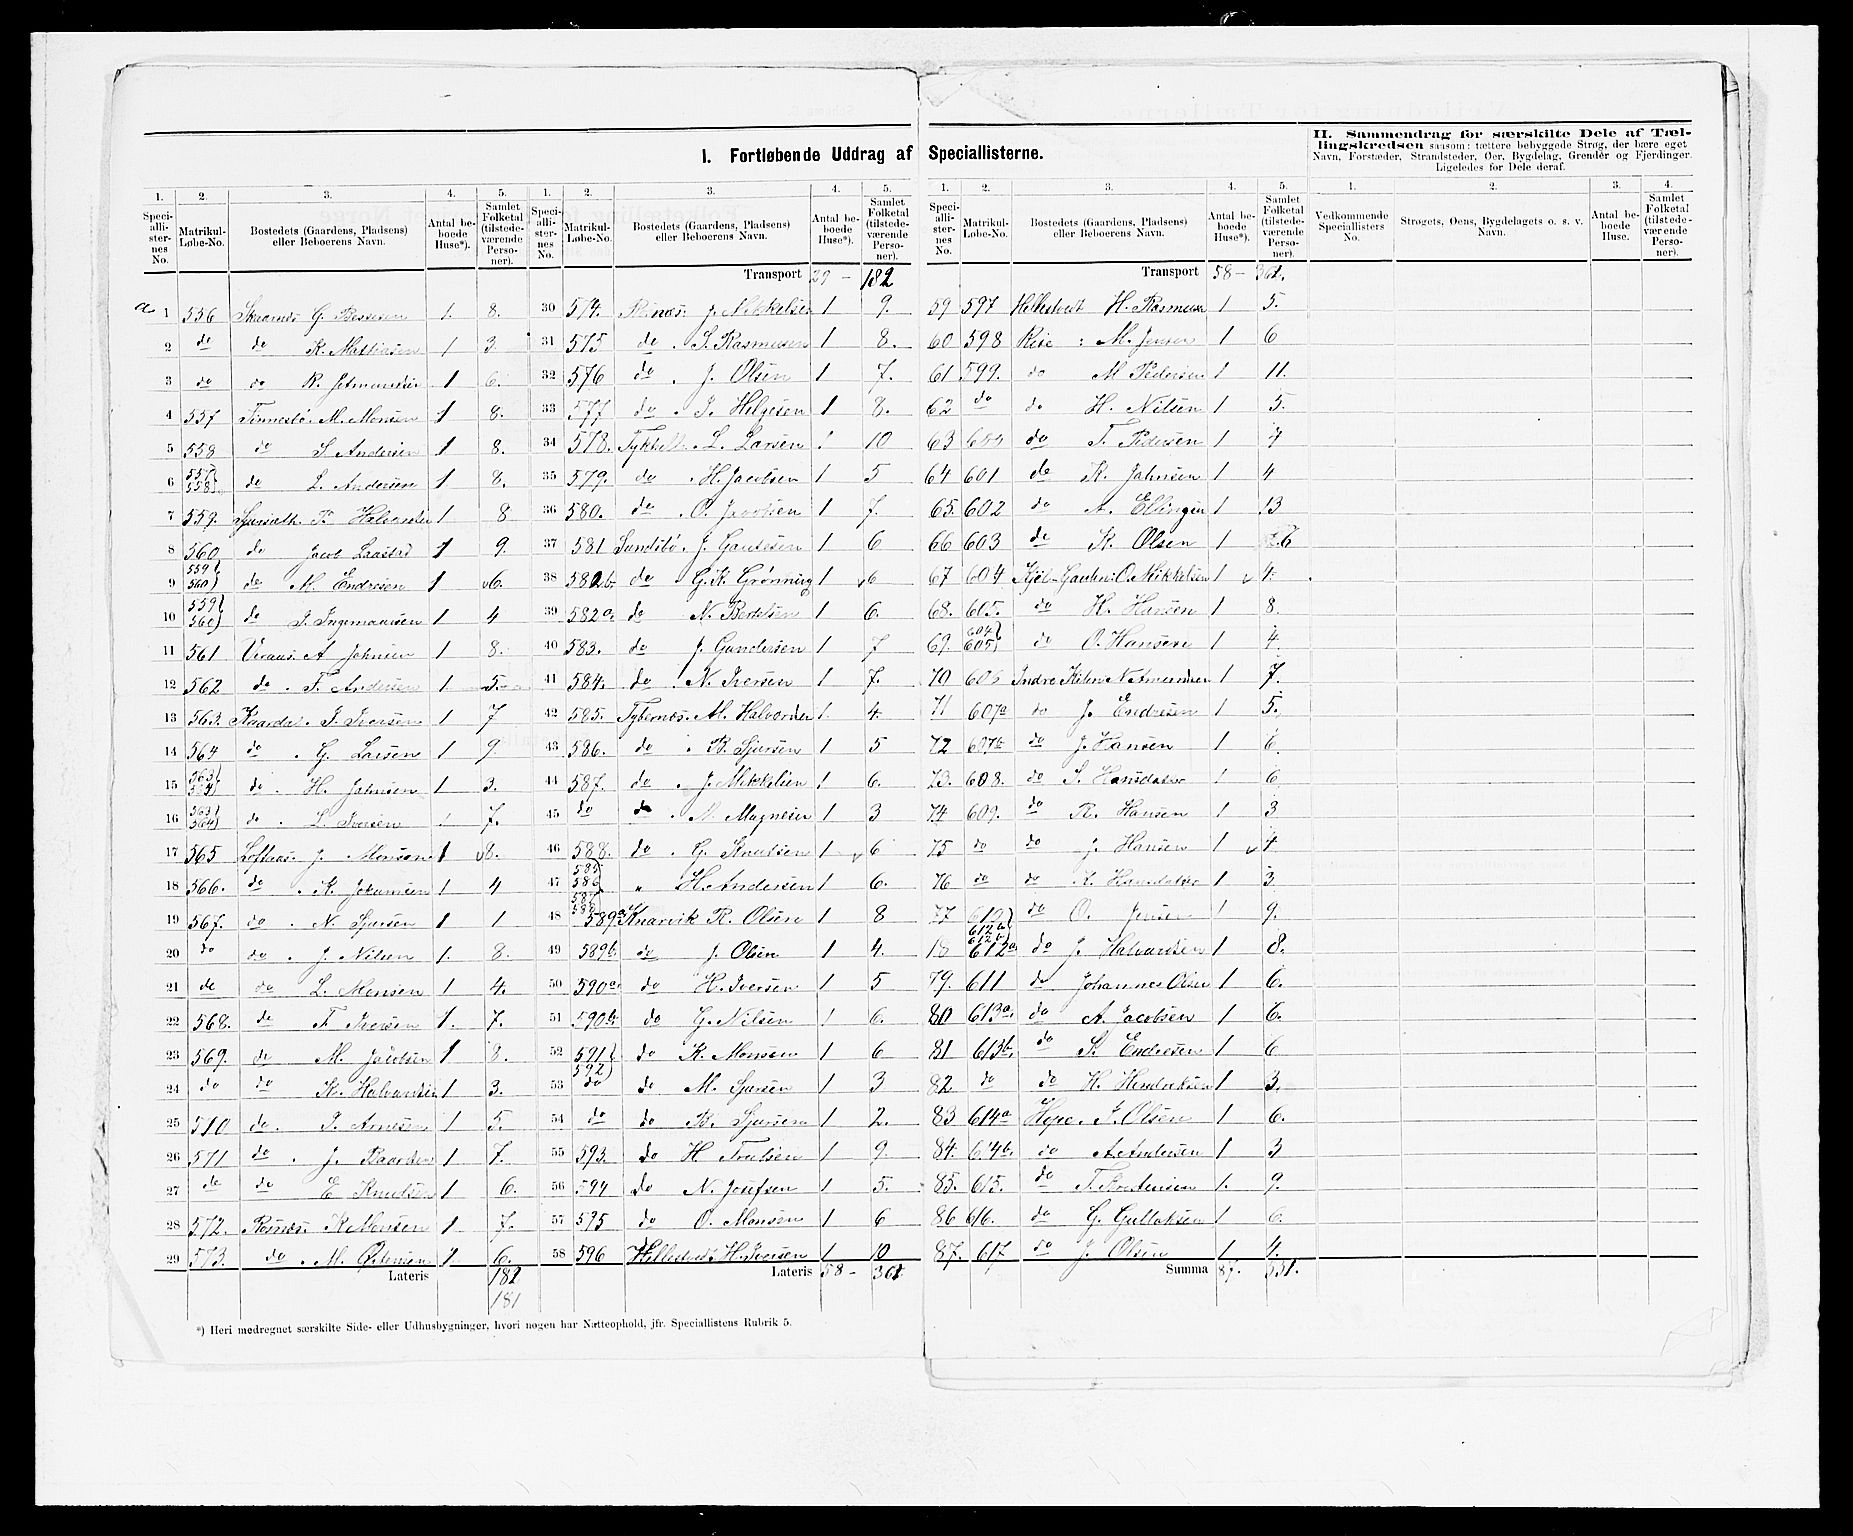 I. Fortløbende Uddrag af Speciallisterne.
II. Sammendrag for særskilte Dele af Tæl-
lingskredsen saasom: tættere bebyggede Strøg, der bære eget
Navn, Forstæder, Strandsteder, Øer, Bygdelag, Grender og Fjerdinger.
Ligeledes for Dele deraf.
1. 2. 3. 4. 5. 1. 2. 3. 4. 5. 1. 2. 3. 4. 5. 1. 2. 3. 4.
Speciallisternes No. Matrikul-Løbe-No. Bostedets (Gaardens, Pladsens) eller Beboerens Navn. Antal beboede Huse*). Samlet Folketal (tilstedeværende Personer).
Speciallisternes No. Matrikul-Løbe-No. Bostedets (Gaardens, Pladsens) eller Beboerens Navn. Antal beboede Huse*). Samlet Folketal (tilstedeværende Personer).
Speciallisternes No. Matrikul-Løbe-No. Bostedets (Gaardens, Pladsens) eller Beboerens Navn. Antal beboede Huse*). Samlet Folketal (tilstedeværende Personer).
Vedkommende Speciallisters No. Strøgets, Øens, Bygdelagets o. s. v. Navn. Antal beboede Huse. Samlet Folketal (tilstedeværende Personer).
1 556 G. 1. 8.
2 do do K. Mathiasen 1 3.
3 do do 1 6.
4 557 M. Monsen 1 8.
5 558 do S Andersen 1 8.
6 557 558 do L. Andersen 1 8.
7 559. Halvorsen 1 8
8 560 do Jacob 1 9.
9 559 560 do M. Endresen 1 6.
10 559 560 do 1 4
11 561 A Johnsen 1 8.
12 562 do. T. Andersen 1. 5.
13 563. Iversen 1 7
14 564 do . G. Larsen 1 9.
15 563 564 do . H. Johnsen 1 3.
16 563 564 do . L. Iversen 1 7.
17 565 Loftaas. J. Monsen 1 8.
18 566. do . K. 1 4
19 567. do . N. Sjursen 1 1
20 do do . J. Nilsen 1. 8.
21 do do L. Monsen 1 4.
22 568. do T. Iversen 1. 7.
23 569. do M. Jacobsen 1 8.
24 do do K. Halvorsen 1 3.
25 570 do. 1 5.
26 571 do . J. 1 7.
27 do do E Knutsen 1 6.
28 572. Rosnæs. K. Monsen 1. 7.
29 573. do . M. 1. 6.
Lateris 182
181
Transport 29 - 182
30 574. J. Mikkelsen 1 9.
31 575 do . S. Rasmusen 1 8.
32 576 do . J. Olsen 1 7.
33 577 do . Helgesen 1 8.
34 578. L. Larsen 1 10
35 579. do . H. Jacobsen 1 5
36 580. do O. Jacobsen 1 7.
37 581 Sundsbø. J. Gautesen 1 6
38 582b. do G. K. Grønning 1 6
39 582a. do N. Bertelsen 1 6.
40 583. do J. Gundersen 1 7
41 584. do . N. Iversen 1 7.
42 585. M. Halvorsen 1. 4.
43 586. do . B. Sjursen 1 5
44 587. do . J. Mikkelsen 1 6.
45 do do . N. Magnesen 1 3
46 588. do . G. Knutsen 1 6
47 585 586 „ H. Andersen 1 6.
48 589a Knarvik R. Olsen 1 8
49 589b. do J. Olsen 1 4.
50 590a. do H. Iversen 1 5
51 590b. do G. Nilsen 1 6.
52 591 592 do K. Monsen 1 6
53 do do M. Sjursen 1 3
54 do do B. Sjursen 1 2.
55 593. do H Troelsen 1 9.
56 594 do N. Josefsen 1. 5.
57 595 do O. Monsen 1 6
58 596 Hillestvedt H. Iversen 1 10
Lateris 58 - 361
Transport 58 - 361.
59 597 H. Rasmusen 1 5.
60 598 Rise : M. Jensen 1 6
61 599. do M Pedersen 1 11.
62 do do H. Nilsen 1 5.
63 600 do T. Pedersen 1 7
64 601 do K. Johnsen 1 4
65. 602 do A. Ellingsen 1 13
66 603 do K. Olsen 1 6
67 604 O. Mikkelsen 1 4.
68. 605. do H. Hansen 1 8.
69. 604 605 do O. Hansen 1 4.
70 606 Indre Kilen N Amundsen 1 7.
71 607a do J. Endresen 1 5.
72 607b do J. Hansen 1 6.
73. 608. do S. Hansdatter 1 6
74 609. do R. Hansen 1 3
75 do do J. Hansen 1 4
76 do do K. Hansdatter 1 3.
77 612 do O. Jensen 1 9.
78 612a do J. Halvardsen 1 8.
79. 611 do Johannes Olsen 1 6.
80 613a. do A. Jacobsen 1 6.
81 613b. do S. Endresen 1 6
82 do do H. Hendriksen 1 3.
83 614a Hope. S. Olsen 1 6.
84. 614b. do A Andersen 1 3
85. 615. do T. Torstensen 1. 9.
86 616. do G. Gulloksen 1 6.
87. 617 do J. Olsen 1 4.
Summa 87. 551.
*) Heri medregnet særskilte Side- eller Udhusbygninger, hvori nogen har Natteophold, jfr. Speciallistens Rubrik 5.